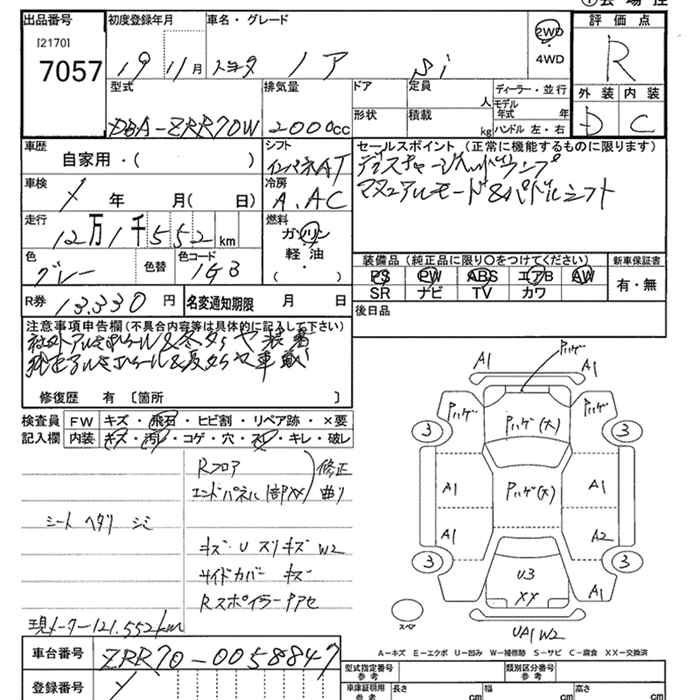 出品番号
[2170]
7057
初度登録年月
19 11月
車名・グレード
トヨタ ノア Si
2WD
・
4WD
評価点
R
外装 内装
D C
型式
DBA-ZRR70W
排気量
2000cc
ドア
形状
定員
人
積載
kg
ディーラー・並行
モデル
年式
年
ハンドル 左・右
車歴
自家用・( )
シフト
インパネAT
冷房
A.AC
車検
年 月( 日)
走行
12万1千552km
燃料
ガソリン
・
軽油
・
( )
色
グレー
色替
色コード
1G3
R券
13,330円
名変通知期限 月 日
セールスポイント(正常に機能するものに限ります)
ディスチャージヘッドランプ
マニュアルモード&パドルシフト
装備品(純正品に限り○をつけてください)
PS PW ABS エアB AW
SR ナビ TV カワ
新車保証書
有・無
後日品
注意事項申告欄(不具合内容等は具体的に記入して下さい)
社外アルミホイール&冬タイヤ装着
純正アルミホイール&夏タイヤ車載
修復歴 有〔箇所 〕
検査員
記入欄
FW キズ・飛石・ヒビ割・リペア跡・×要
内装 キズ・汚レ・コゲ・穴・スレ・キレ・破レ
Rフロア
エンドパネル1部XX
修正
曲り
シート ヘタリ シミ
キズ・U スリキズ W2
サイドカバー キズ
Rスポイラーアセ
現メーター121,552km
車台番号
ZRR70-0058847
登録番号
A1 Pハゲ A1
Pハゲ Pハゲ(大) Pハゲ
3 3
A1 Pハゲ(大) A1
A1 A2
3 U3 3
XX A1
スペア
UA1 W2
A－キズ E－エクボ U－凹み W－補修跡 S－サビ C－腐食 XX－交換済
型式指定番号
参考
類別区分番号
参考
車庫証明用
参考
長さ
cm
幅
cm
高さ
cm